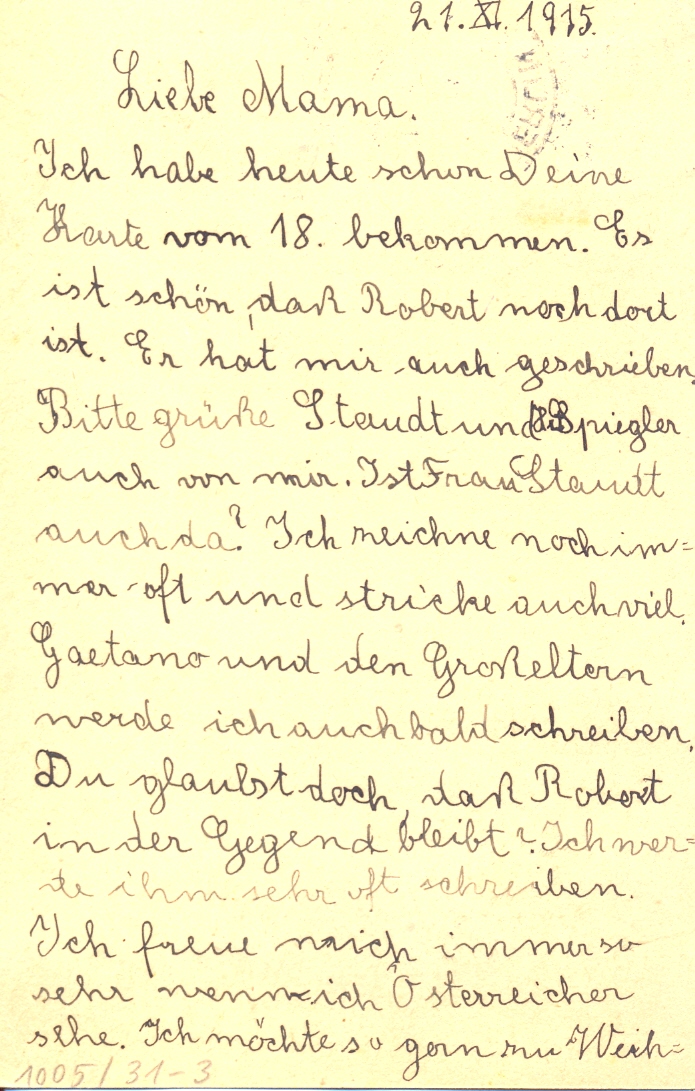 21. XI. 1915.
Liebe Mama.
Ich habe heute schon Deine
Karte vom 18. bekommen. Es
ist schön, daß Robert noch dort
ist. Er hat mir auch geschrieben.
Bitte grüße Staudt und Spiegler
auch von mir. Ist Frau Staudt
auch da? Ich zeichne noch im=
mer oft und stricke auch viel.
Gaetano und den Großeltern
werde ich auch bald schreiben.
Du glaubst doch, daß Robert
in der Gegend bleibt? Ich wer=
de ihm sehr oft schreiben.
Ich freue mich immer so
sehr wenn ich Österreicher
sehe. Ich möchte so gern zu Weih=
1005/31-3